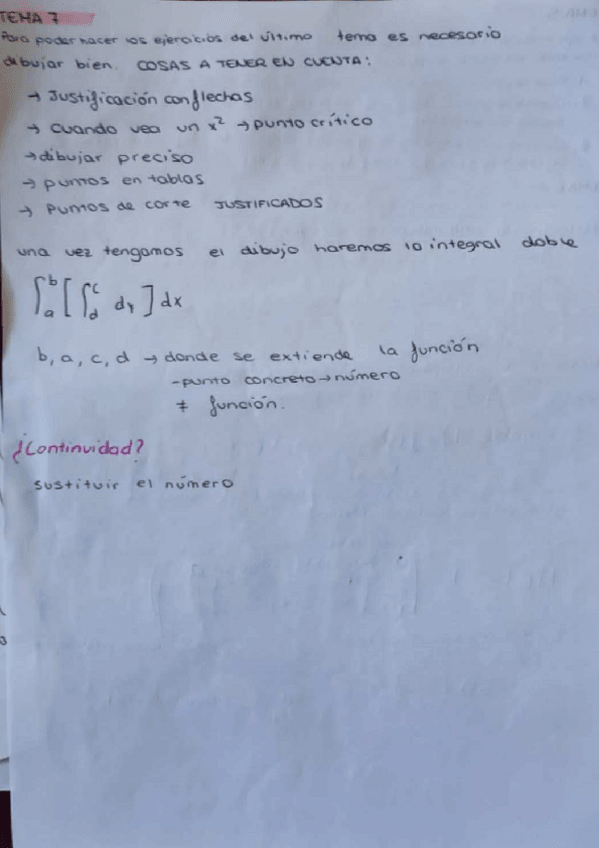 TEMA 7
Para poder hacer los ejercicios del último tema es necesario
dibujar bien. COSAS A TENER EN CUENTA:
→ Justificación con flechas
→ cuando vea un x² → punto crítico
→ dibujar preciso
→ puntos en tablas
→ puntos de corte JUSTIFICADOS
una vez tengamos el dibujo haremos la integral doble
∫ₐᵇ [∫_d^c dy] dx
b, a, c, d → donde se extiende la función
- punto concreto → número
≠ función.
¿Continuidad?
sustituir el número